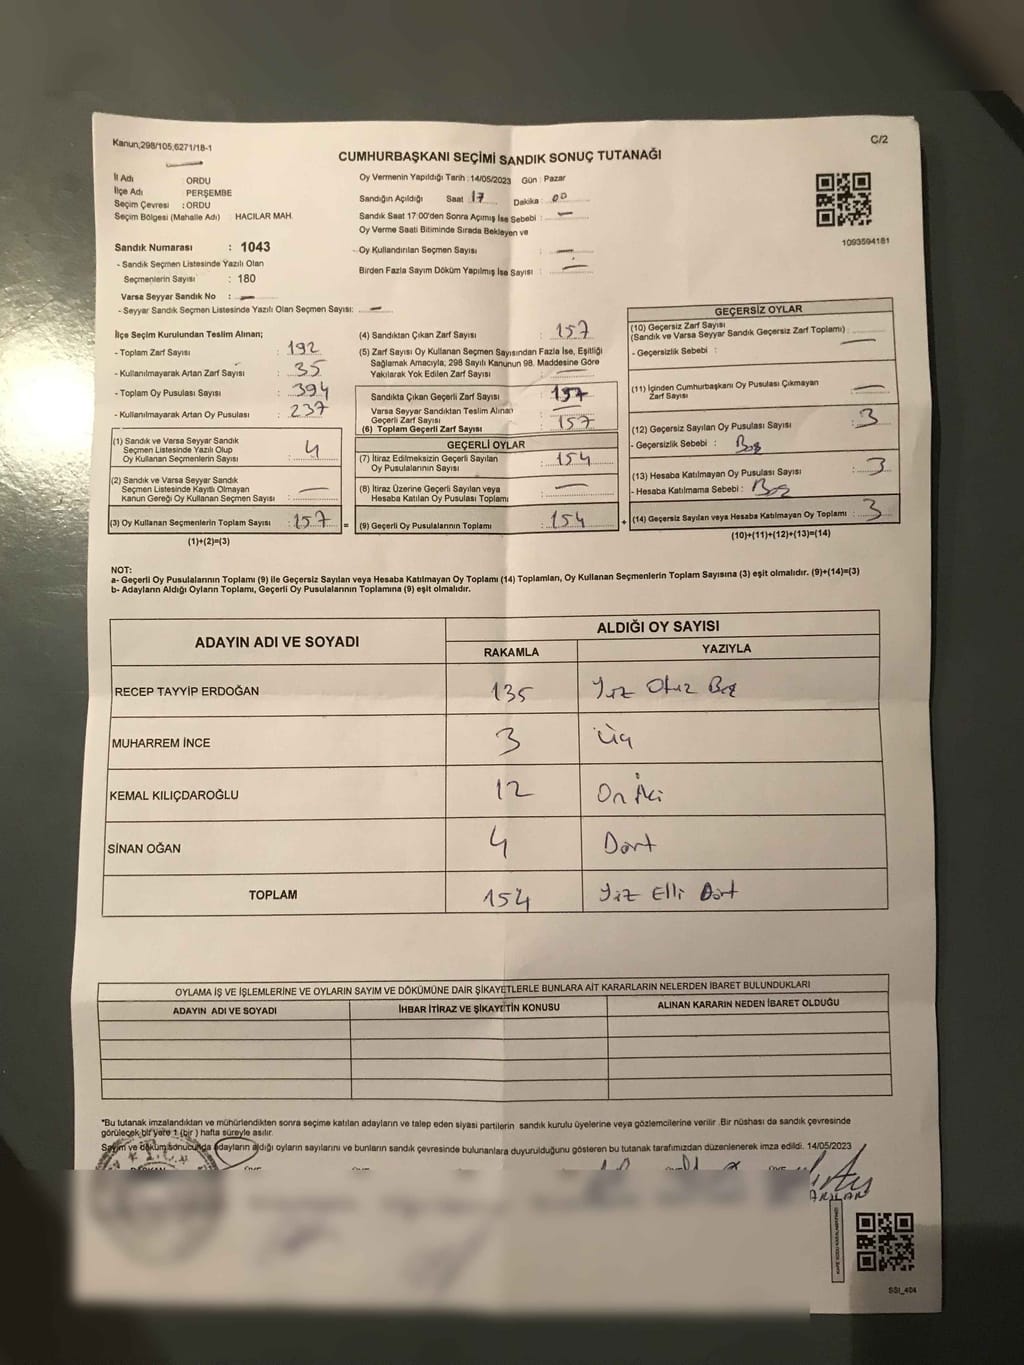 Kanun,298/105,6271/18-1
C/2
CUMHURBAŞKANI SEÇİMİ SANDIK SONUÇ TUTANAĞI
İl Adı ORDU
İlçe Adı PERŞEMBE
Seçim Çevresi : ORDU
Seçim Bölgesi (Mahalle Adı) HACILAR MAH.
Sandık Numarası : 1043
- Sandık Seçmen Listesinde Yazılı Olan
Seçmenlerin Sayısı : 180
Varsa Seyyar Sandık No : —
- Seyyar Sandık Seçmen Listesinde Yazılı Olan Seçmen Sayısı: —
Oy Vermenin Yapıldığı Tarih :14/05/2023 Gün : Pazar
Sandığın Açıldığı Saat 17 Dakika : 00
Sandık Saat 17:00'den Sonra Açımış İse Sebebi : —
Oy Verme Saati Bitiminde Sırada Bekleyen ve
Oy Kullandırılan Seçmen Sayısı : —
Birden Fazla Sayım Döküm Yapılmış İse Sayısı : —
1093594181
İlçe Seçim Kurulundan Teslim Alınan;
- Toplam Zarf Sayısı : 192
- Kullanılmayarak Artan Zarf Sayısı : 35
- Toplam Oy Pusulası Sayısı : 394
- Kullanılmayarak Artan Oy Pusulası : 237
(1) Sandık ve Varsa Seyyar Sandık
Seçmen Listesinde Yazılı Olup
Oy Kullanan Seçmenlerin Sayısı : 4
(2) Sandık ve Varsa Seyyar Sandık
Seçmen Listesinde Kayıtlı Olmayan
Kanun Gereği Oy Kullanan Seçmen Sayısı : —
(3) Oy Kullanan Seçmenlerin Toplam Sayısı : 157 =
(1)+(2)=(3)
(4) Sandıktan Çıkan Zarf Sayısı : 157
(5) Zarf Sayısı Oy Kullanan Seçmen Sayısından Fazla İse, Eşitliği
Sağlamak Amacıyla; 298 Sayılı Kanunun 98. Maddesine Göre
Yakılarak Yok Edilen Zarf Sayısı : —
Sandıkta Çıkan Geçerli Zarf Sayısı : 157
Varsa Seyyar Sandıktan Teslim Alınan
Geçerli Zarf Sayısı : —
(6) Toplam Geçerli Zarf Sayısı : 157
GEÇERLİ OYLAR
(7) İtiraz Edilmeksizin Geçerli Sayılan
Oy Pusulalarının Sayısı : 154
(8) İtiraz Üzerine Geçerli Sayılan veya
Hesaba Katılan Oy Pusulası Toplamı : —
(9) Geçerli Oy Pusulalarının Toplamı : 154 +
GEÇERSİZ OYLAR
(10) Geçersiz Zarf Sayısı
(Sandık ve Varsa Seyyar Sandık Geçersiz Zarf Toplamı) : —
- Geçersizlik Sebebi :
(11) İçinden Cumhurbaşkanı Oy Pusulası Çıkmayan
Zarf Sayısı : —
(12) Geçersiz Sayılan Oy Pusulası Sayısı : 3
- Geçersizlik Sebebi : Boş
(13) Hesaba Katılmayan Oy Pusulası Sayısı : 3
- Hesaba Katılmama Sebebi : Boş
(14) Geçersiz Sayılan veya Hesaba Katılmayan Oy Toplamı : 3
(10)+(11)+(12)+(13)=(14)
NOT:
a- Geçerli Oy Pusulalarının Toplamı (9) ile Geçersiz Sayılan veya Hesaba Katılmayan Oy Toplamı (14) Toplamları, Oy Kullanan Seçmenlerin Toplam Sayısına (3) eşit olmalıdır. (9)+(14)=(3)
b- Adayların Aldığı Oyların Toplamı, Geçerli Oy Pusulalarının Toplamına (9) eşit olmalıdır.
ADAYIN ADI VE SOYADI ALDIĞI OY SAYISI
RAKAMLA YAZIYLA
RECEP TAYYİP ERDOĞAN 135 Yüz Otuz Beş
MUHARREM İNCE 3 Üç
KEMAL KILIÇDAROĞLU 12 On İki
SİNAN OĞAN 4 Dört
TOPLAM 154 Yüz Elli Dört
OYLAMA İŞ VE İŞLEMLERİNE VE OYLARIN SAYIM VE DÖKÜMÜNE DAİR ŞİKAYETLERLE BUNLARA AİT KARARLARIN NELERDEN İBARET BULUNDUKLARI
ADAYIN ADI VE SOYADI İHBAR İTİRAZ VE ŞİKAYETİN KONUSU ALINAN KARARIN NEDEN İBARET OLDUĞU
*Bu tutanak imzalandıktan ve mühürlendikten sonra seçime katılan adayların ve talep eden siyasi partilerin sandık kurulu üyelerine veya gözlemcilerine verilir .Bir nüshası da sandık çevresinde
görülecek bir yere 1 (bir ) hafta süreyle asılır.
Sayım ve döküm sonucunda adayların aldığı oyların sayılarını ve bunların sandık çevresinde bulunanlara duyurulduğunu gösteren bu tutanak tarafımızdan düzenlenerek imza edildi. 14/05/2023
ARSLAN
SSI_404